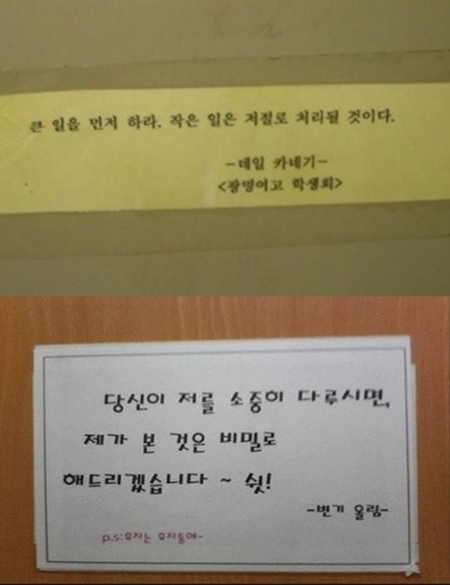 큰 일을 먼저 하라. 작은 일은 저절로 처리될 것이다.
-데일 카네기-
<광명여고 학생회>
당신이 저를 소중히 다루시면,
제가 본 것은 비밀로
해드리겠습니다 ~ 쉿!
-변기 올림-
p.s:휴지는 휴지통에-